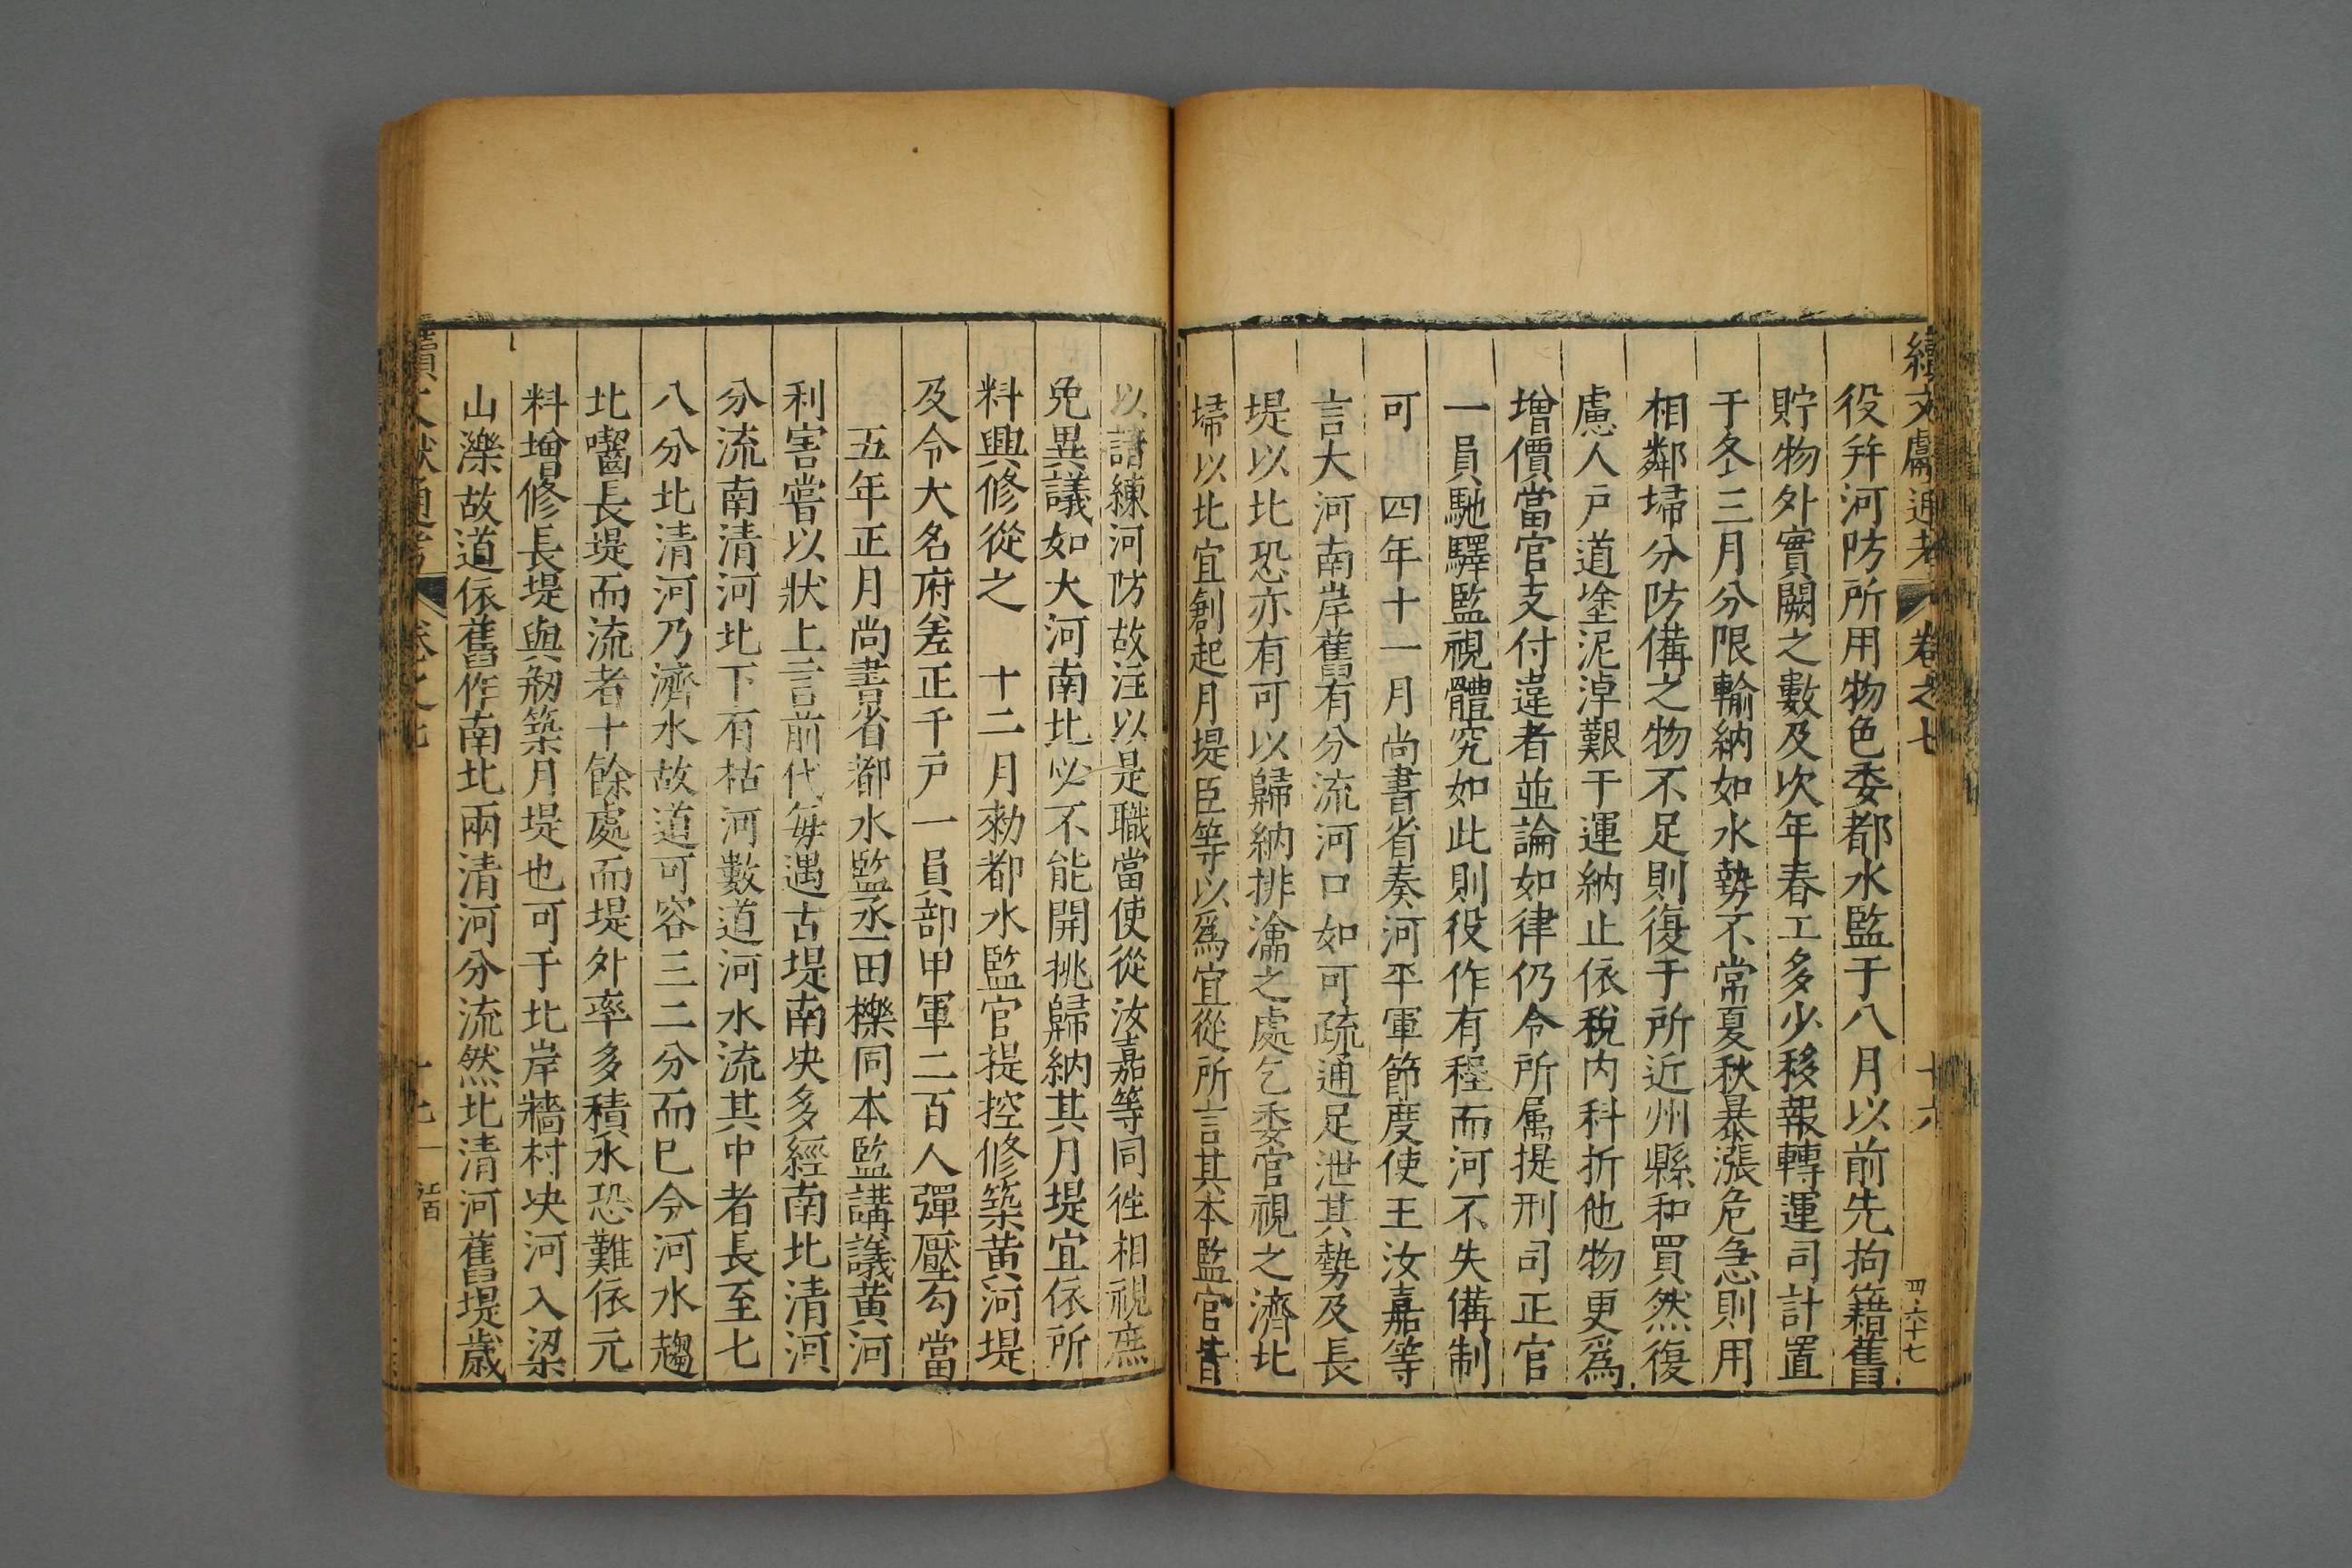 續文獻通考 卷之七 十六 四六十七
役并河防所用物色委都水監于八月以前先拘籍舊
貯物外實闕之數及次年春工多少移報轉運司計置
于冬三月分限輸納如水勢不常夏秋暴漲危急則用
相鄰埽分防備之物不足則復于所近州縣和買然復
慮人戶道塗泥淖艱于運納止依稅內科折他物更爲
增價當官支付違者並論如律仍令所属提刑司正官
一員馳驛監視體究如此則役作有程而河不失備制
可 四年十一月尚書省奏河平軍節度使王汝嘉等
言大河南岸舊有分流河口如可疏通足泄其勢及長
堤以北恐亦有可以歸納排瀹之處乞委官視之濟北
埽以北宜創起月堤臣等以爲宜從所言其本監官皆
以諳練河防故注以是職當使從汝嘉等同徃相視庶
免異議如大河南北必不能開挑歸納其月堤宜依所
料興修從之 十二月勑都水監官提控修築黄河堤
及令大名府差正千戸一員部甲軍二百人彈壓勾當
五年正月尚書省都水監丞田櫟同本監講議黄河
利害嘗以狀上言前代每遇古堤南决多經南北清河
分流南清河北下有枯河數道河水流其中者長至七
八分北清河乃濟水故道可容三二分而巳今河水趨
北嚙長堤而流者十餘處而堤外率多積水恐難依元
料增修長堤與剏築月堤也可于北岸牆村决河入梁
山濼故道依舊作南北兩清河分流然北清河舊堤歲
續文獻通考 卷之七 十七